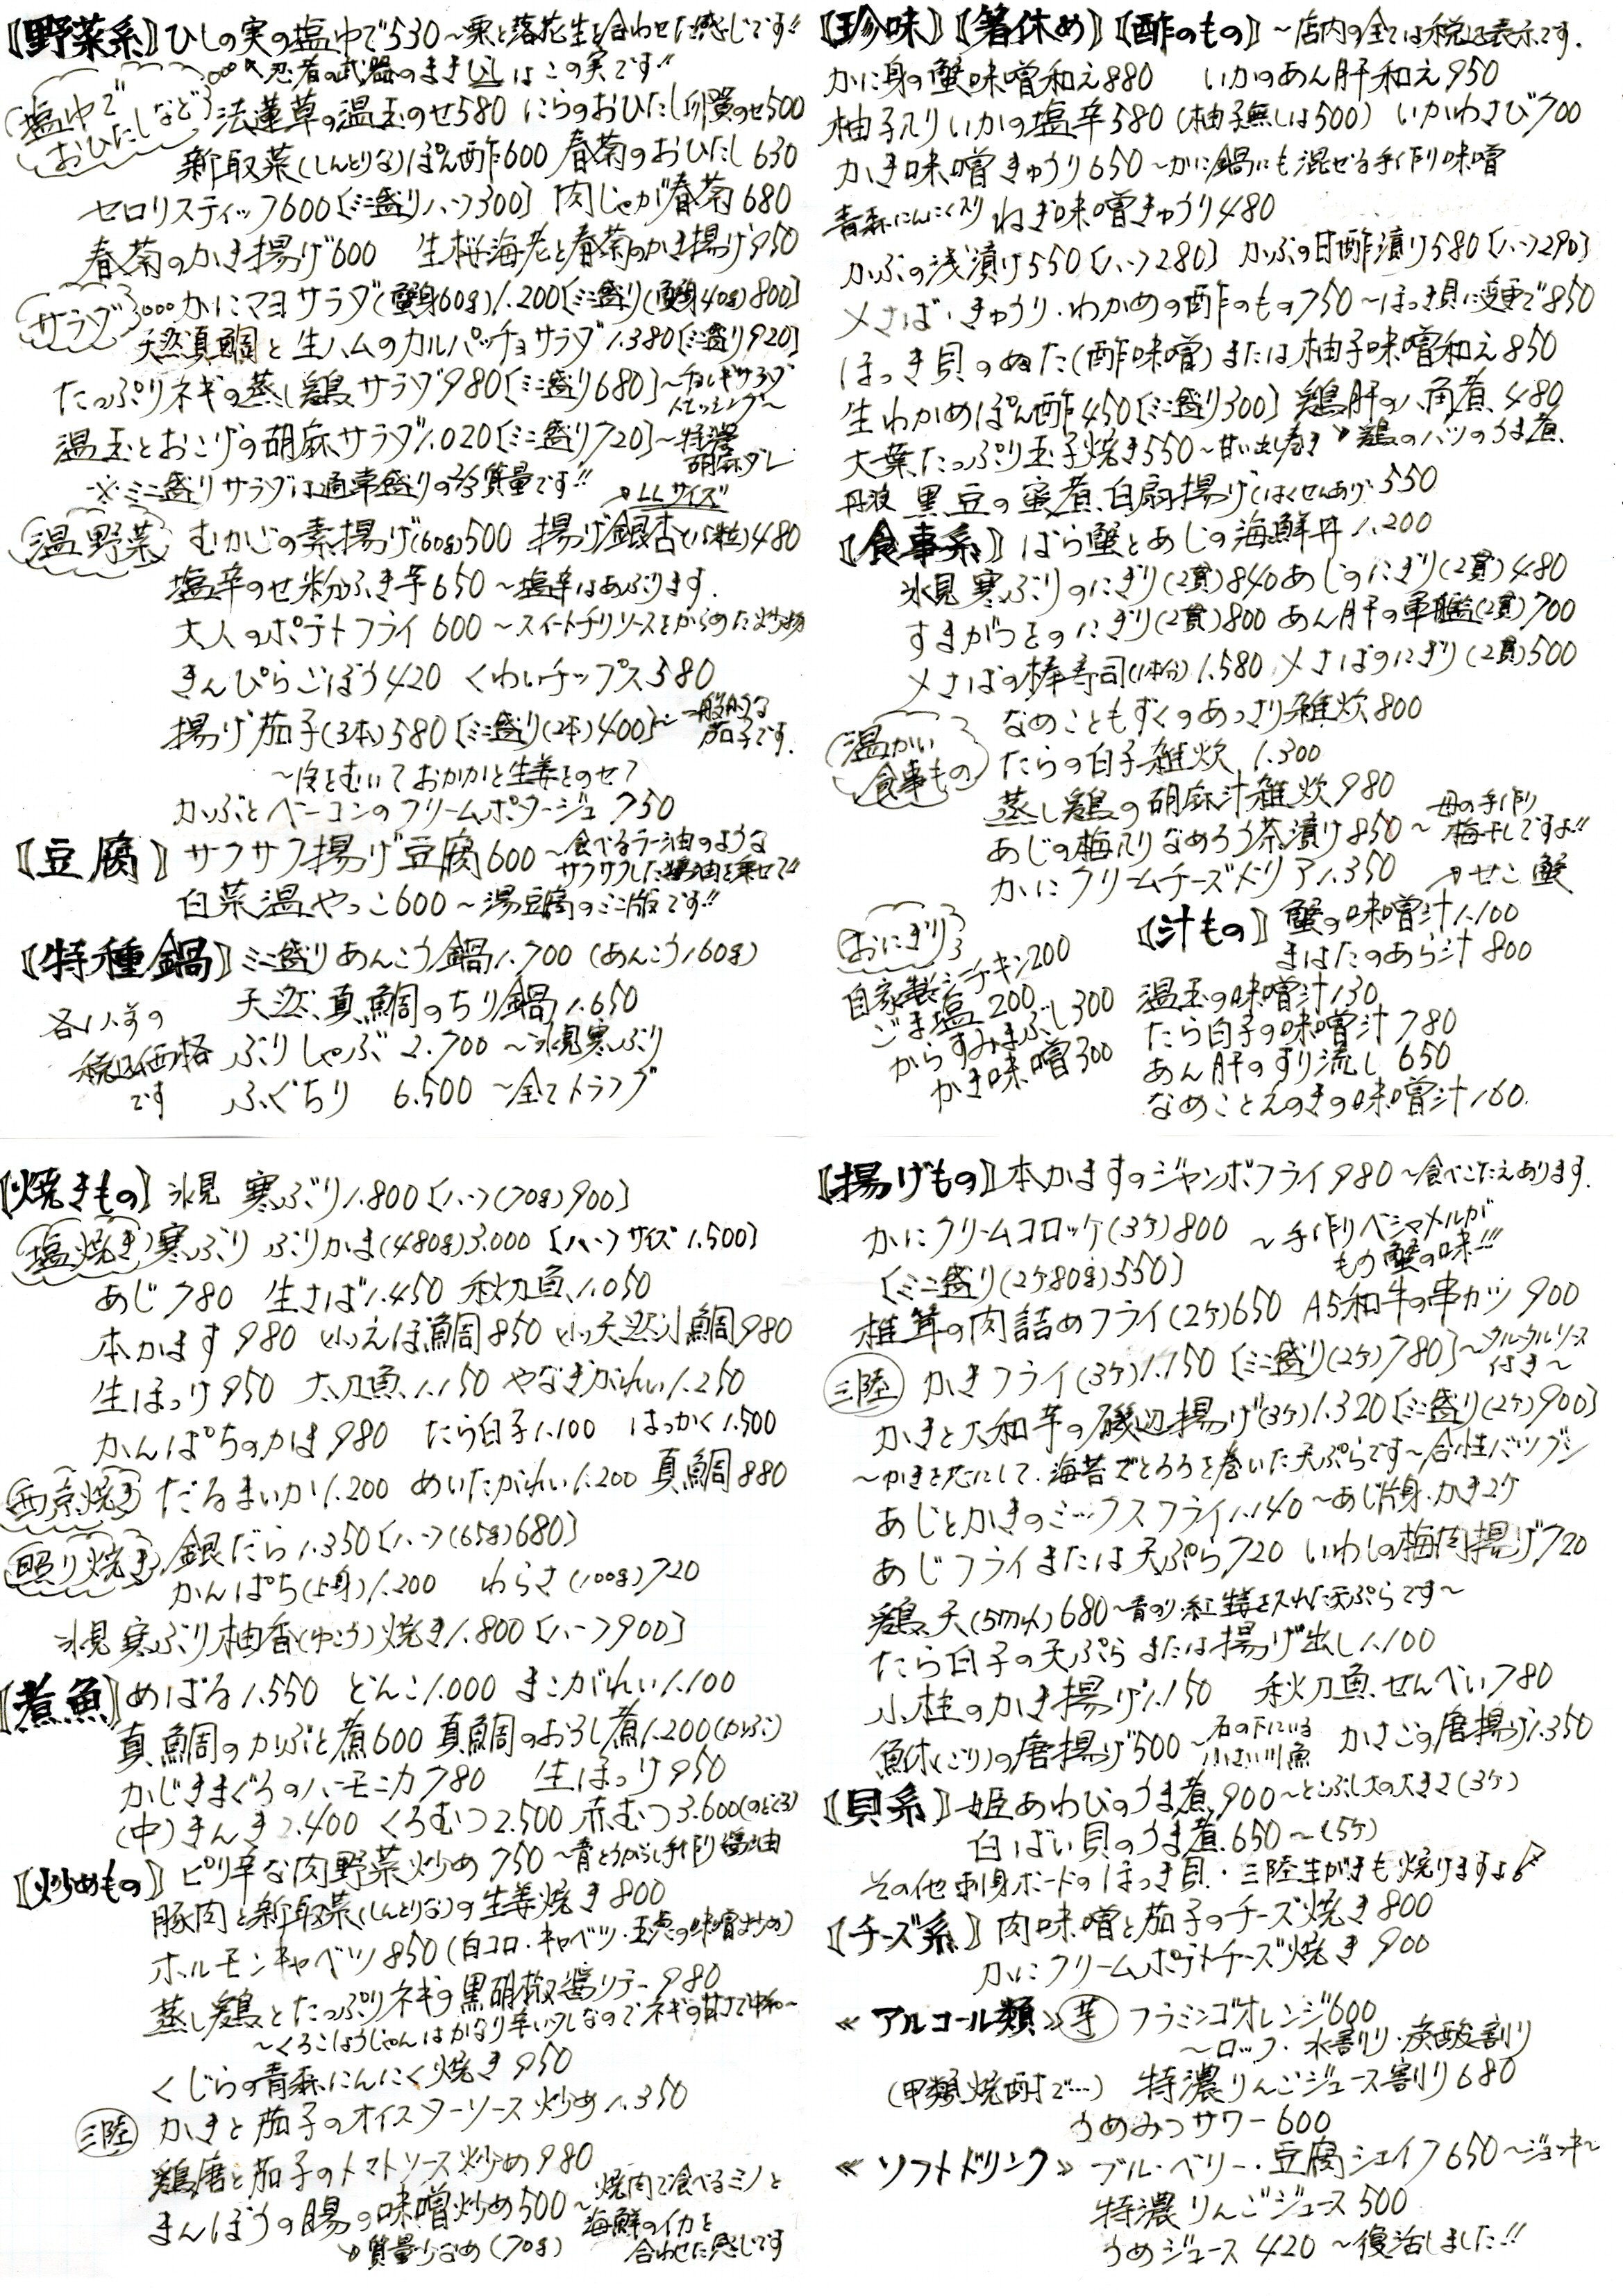 【野菜系】ひしの実の塩ゆで530〜栗と落花生を合わせた感じです!!
忍者の武器のまきびしはこの実です!!
塩ゆで おひたしなど
法蓮草の温玉のせ580 にらのおひたし卵黄のせ500
新取菜(しんとりな)ぽん酢600 春菊のおひたし630
セロリスティック600〔ミニ盛りハーフ300〕 肉じゃが春菊680
春菊のかき揚げ600 生桜海老と春菊のかき揚げ950
サラダ かにマヨサラダ(蟹身60g)1.200〔ミニ盛り(蟹身40g)800〕
天然真鯛と生ハムのカルパッチョサラダ1.380〔ミニ盛り920〕
たっぷりネギの蒸し鶏サラダ980〔ミニ盛り680〕〜チョレギサラダドレッシング〜
温玉とおこげの胡麻サラダ1.020〔ミニ盛り720〕〜特濃胡麻ダレ
※ミニ盛りサラダは通常盛りの2/3質量です!!
LLサイズ
温野菜 むかごの素揚げ(60g)500 揚げ銀杏(15粒)480
塩辛のせ粉ふき芋650〜塩辛はあぶります.
大人のポテトフライ600〜スイートチリソースをからめた炒め物
きんぴらごぼう420 くわいチップス580
揚げ茄子(3本)580〔ミニ盛り(2本)400〕〜一般的な茄子です.
〜皮をむいておかかと生姜をのせて
かぶとベーコンのクリームポタージュ750
【豆腐】サクサク揚げ豆腐600〜食べるラー油のような
サクサクした醤油を乗せて!!
白菜温やっこ600〜湯豆腐のミニ版です!!
【特種鍋】ミニ盛りあんこう鍋1.700 (あんこう160g)
各1人前の税込価格です
天然真鯛のちり鍋1.650
ぶりしゃぶ 2.700〜氷見寒ぶり
ふぐちり 6.500〜全てトラフグ
【珍味】【箸休め】【酢のもの】〜店内の全ては税込表示です.
かに身の蟹味噌和え880 いかのあん肝和え950
柚子入りいかの塩辛580(柚子無しは500) いかわさび700
かき味噌きゅうり650〜かに鍋にも混ぜる手作り味噌
青森にんにく入り ねぎ味噌きゅうり480
かぶの浅漬け550〔ハーフ280〕 かぶの甘酢漬け580〔ハーフ290〕
〆さば・きゅうり・わかめの酢のもの750〜ほっき貝に変更で850
ほっき貝のぬた(酢味噌)または柚子味噌和え850
生わかめぽん酢450〔ミニ盛り300〕 鶏肝の八角煮480
大葉たっぷり玉子焼き550〜甘い出し巻き 鶏のハツのうま煮
丹波 黒豆の蜜煮白扇揚げ(はくせんあげ)550
【食事系】ばら蟹とあじの海鮮丼1.200
氷見寒ぶりのにぎり(2貫)840 あじのにぎり(2貫)480
すまがつおのにぎり(2貫)800 あん肝の軍艦(2貫)700
〆さばの棒寿司(1本分)1.580 〆さばのにぎり(2貫)500
温かい食事もの
なめこともずくのあっさり雑炊800
たらの白子雑炊 1.300
蒸し鶏の胡麻汁雑炊980
あじの梅入りなめろう茶漬け850〜母の手作り梅干しですよ!!
かにクリームチーズドリア1.350
おにぎり
自家製シーチキン200
ごま塩200
からすみまぶし300
かき味噌300
せこ蟹
【汁もの】蟹の味噌汁1.100
まはたのあら汁 800
温玉の味噌汁130
たら白子の味噌汁780
あん肝のすり流し 650
なめことえのきの味噌汁160.
【焼きもの】氷見 寒ぶり1.800〔ハーフ(70g)900〕
塩焼き 寒ぶり ぶりかま(480g)3.000〔ハーフサイズ1.500〕
あじ780 生さば1.450 秋刀魚1.050
本かます980 (小)えぼ鯛850 (小)天然小鯛980
生ほっけ950 太刀魚1.150 やなぎがれい1.250
かんぱちのかま980 たら白子1.100 はっかく1.500
西京焼き だるまいか1.200 めいたがれい1.200 真鯛880
照り焼き 銀だら1.350〔ハーフ(65g)680〕
かんぱち(上身)1.200 わらさ(100g)720
氷見寒ぶり柚香(ゆこう)焼き1.800〔ハーフ900〕
【煮魚】めばる1.550 どんこ1.000 まこがれい1.100
真鯛のかぶと煮600 真鯛のおろし煮1.200(かぶ)
かじきまぐろのハーモニカ780 生ほっけ950
(中)きんき2.400 くろむつ2.500 赤むつ3.600(のどぐろ)
【炒めもの】ピリ辛な肉野菜炒め750〜青とうがらし手作り醤油
豚肉と新取菜(しんとりな)の生姜焼き800
ホルモンキャベツ850(白コロ・キャベツ・玉葱の味噌炒め)
蒸し鶏とたっぷりネギの黒胡椒醤ソテー980
〜くろこしょうじゃんはかなり辛いクしなのでネギの甘さで中和〜
くじらの青森にんにく焼き950
三陸 かきと茄子のオイスターソース炒め1.350
鶏唐と茄子のトマトソース炒め980
まんぼうの腸の味噌炒め500〜焼肉で食べるミノと
海鮮のイカを合わせた感じです
質量少なめ(70g)
【揚げもの】本かますのジャンボフライ980〜食べごたえあります.
かにクリームコロッケ(3ケ)800 〜手作りベシャメルがもう蟹の味!!!
〔ミニ盛り(2ケ80g)550〕
椎茸の肉詰めフライ(2ケ)650 A5和牛の串カツ900
三陸 かきフライ(3ケ)1.150〔ミニ盛り(2ケ)780〕〜タルタルソース付き〜
かきと大和芋の磯辺揚げ(3ケ)1.320〔ミニ盛り(2ケ)900〕
〜かきを芯にして、海苔でとろろを巻いた天ぷらです〜合性バツグン
あじとかきのミックスフライ1.140〜あじ片身・かき2ケ
あじフライまたは天ぷら720 いわしの梅肉揚げ720
鶏天(5切れ)680〜青のり・紅生姜を入れた天ぷらです〜
たら白子の天ぷらまたは揚げ出し1.100
小柱のかき揚げ1.150 秋刀魚せんべい780
鮴(ごり)の唐揚げ500〜石の下にいる小さい川魚 かさごの唐揚げ1.350
【貝系】姫あわびのうま煮900〜とこぶし大の大きさ(3ケ)
白ばい貝のうま煮650〜(5ケ)
その他刺身ボードのほっき貝・三陸生がきも焼けますよ
【チーズ系】肉味噌と茄子のチーズ焼き800
かにクリームポテトチーズ焼き 900
≪アルコール類≫ 芋 フラミンゴオレンジ600
〜ロック・水割り・炭酸割り
(甲類焼酎で…) 特濃りんごジュース割り680
うめみつサワー600
≪ソフトドリンク≫ ブルーベリー・豆腐シェイク650〜ジョッキ〜
特濃りんごジュース500
うめジュース 420〜復活しました!!